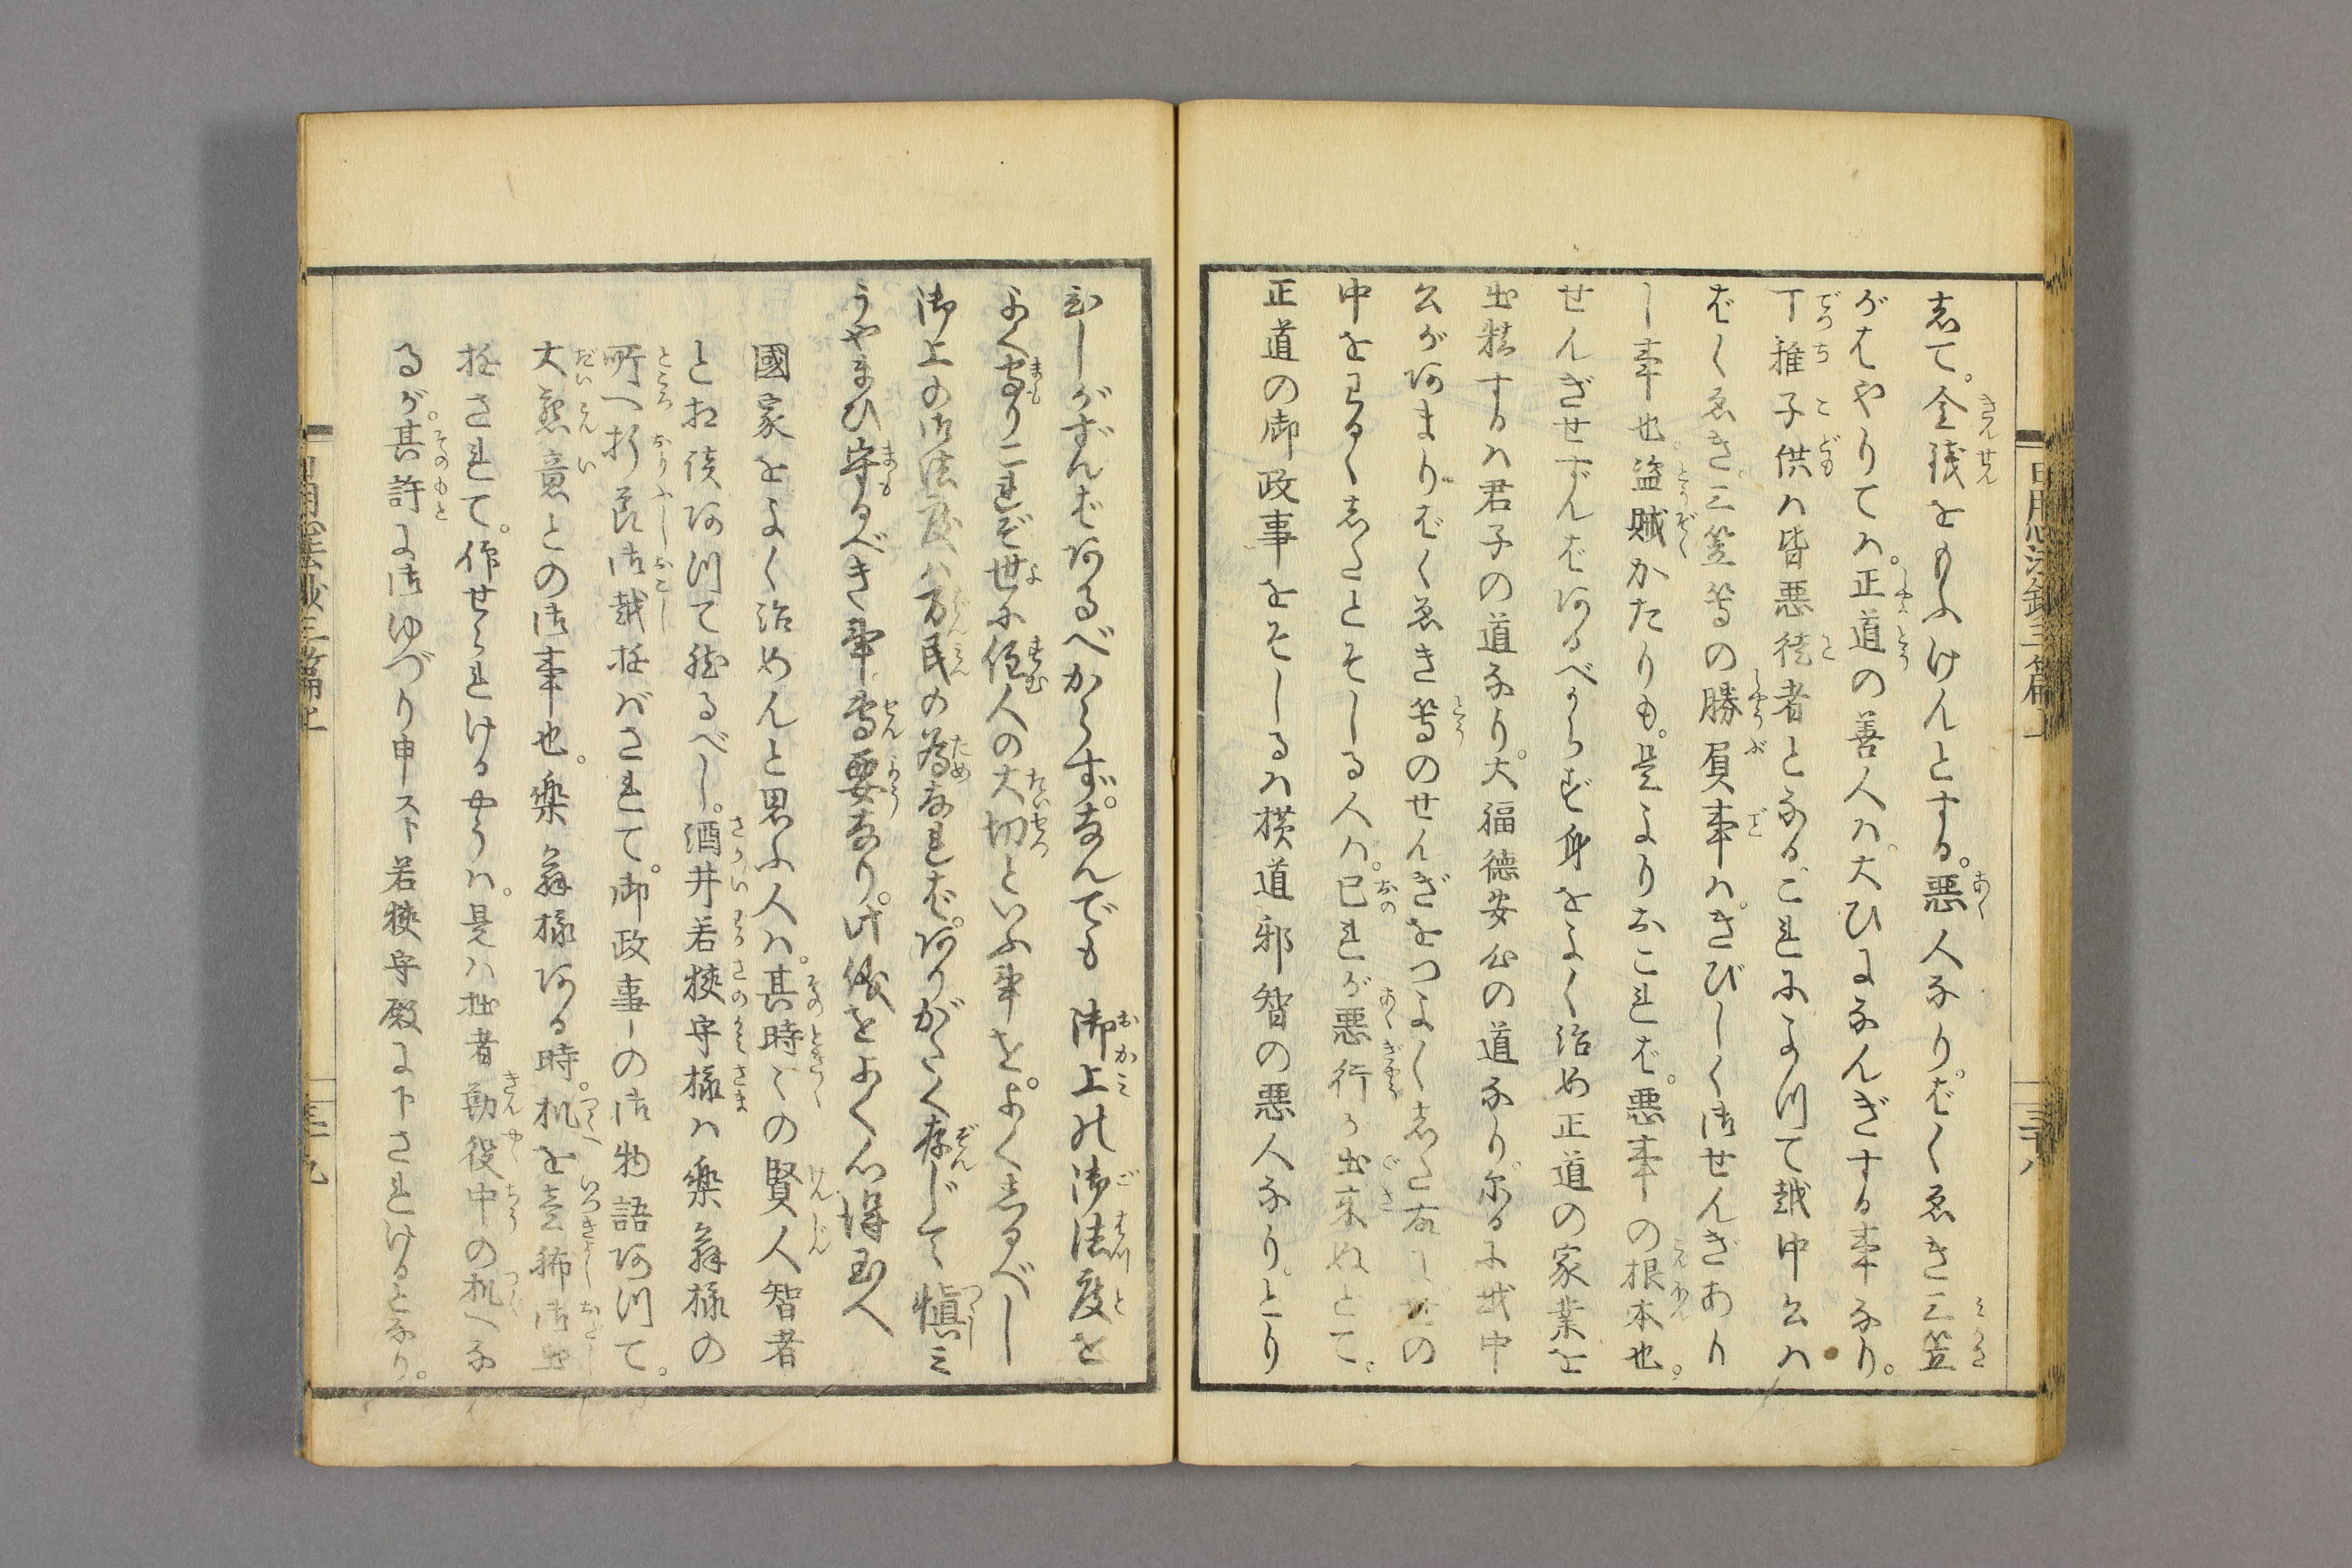 日用心法鈔三篇上
三十八
志て。金銭をもふけんとする。悪人なり。ばくゑき三笠
がはやりてハ。正道の善人ハ。大ひになんぎする事なり。
丁稚子供ハ皆悪徒者となる。これによつて越中公ハ
ばくゑき。三笠等の勝負事ハ。きびしく御せんぎあり
し事也。盗賊かたりも。是よりおこれば。悪事の根本也。
せんぎせずんばあるべからず身をよく治め正道の家業を
出精するハ君子の道なり。大福徳安心の道なり。尓るに越中
公があまりばくゑき等のせんぎをつよく志た故に世の
中をわるく志たとそしる人ハ。己れが悪行が出来ぬとて。
正道の御政事をそしるハ横道邪智の悪人なり。とり
ひしがずんばあるべからず。なんでも 御上の御法度を
よく守りこれぞ世に住人の大切といふ事を。よくしるべし
御上の御法度ハ万民の為なれば。ありがたく存じて慎ミ
うやまひ守るべき事専要なり。此儀をよく心得玉へ
國家をよく治めんと思ふ人ハ。其時〻の賢人智者
と相談あつて然るべし。酒井若狭守様ハ樂翁様の
所へ折節御越遊バされて。御政事の御物語あつて。
大懇意との御事也。樂翁様ある時。机を壱脚御出
遊されて。仰せられけるやうハ。是ハ拙者勤役中の机へな
るが。其許に御ゆづり申スト若狭守殿に下されけるとなり。
日用心法鈔三篇上
三十九